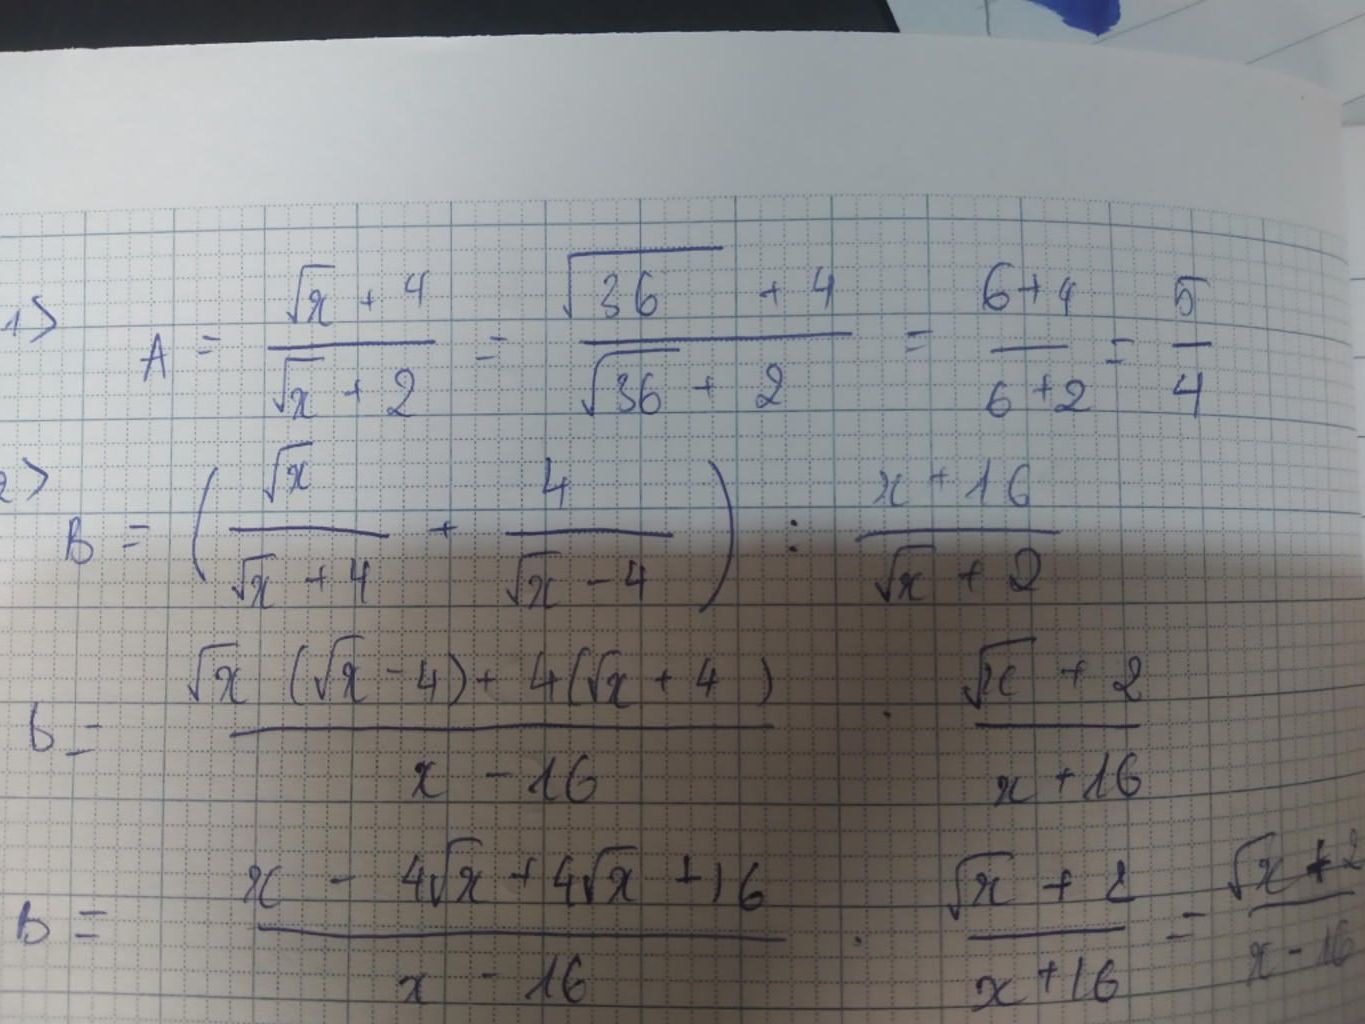 1> A = (√x + 4)/(√x + 2) = (√36 + 4)/(√36 + 2) = (6+4)/(6+2) = 5/4
2> B = (√x/(√x + 4) + 4/(√x - 4)) : (x + 16)/(√x + 2)
B = (√x (√x - 4) + 4(√x + 4))/(x - 16) . (√x + 2)/(x + 16)
B = (x - 4√x + 4√x + 16)/(x - 16) . (√x + 2)/(x + 16) = (√x + 2)/(x - 16)